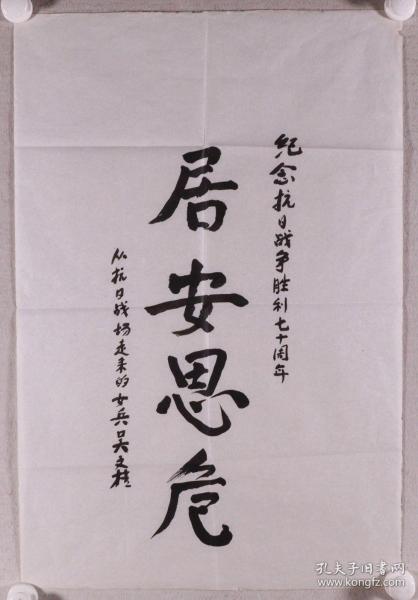 纪念抗日战争胜利七十周年
居安思危
从抗日战场走来的女兵吴之桂
孔夫子旧书网
www.kongfz.com